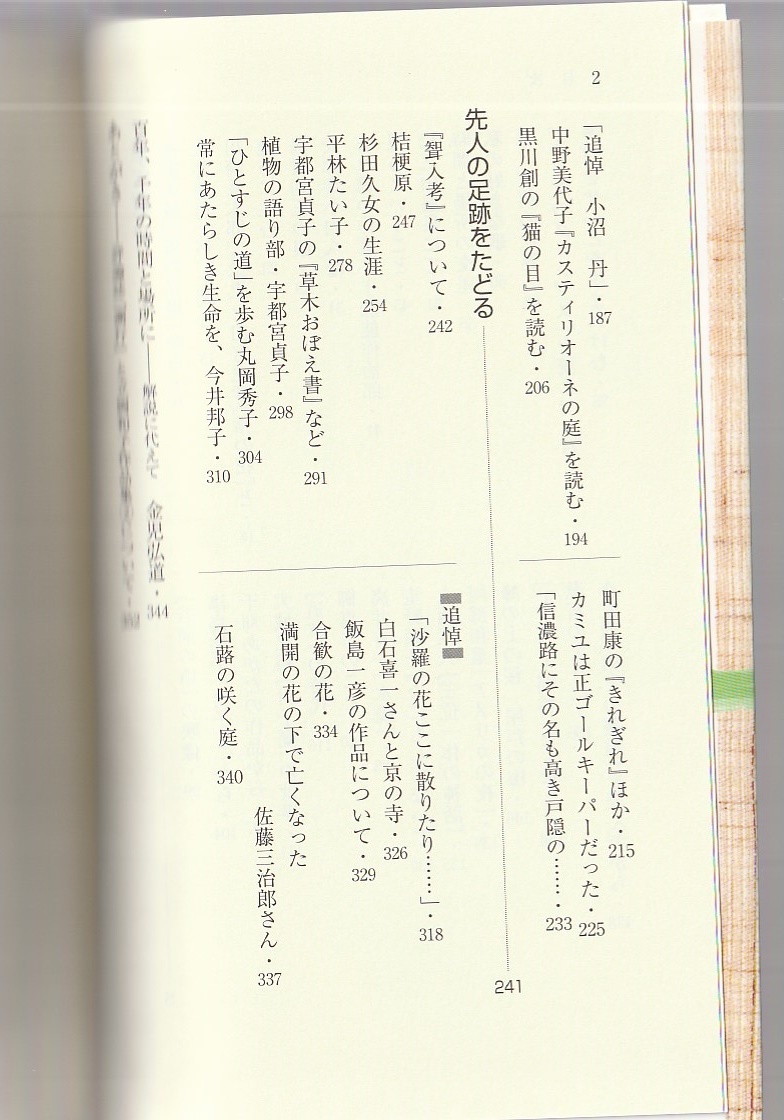 2
「追悼　小沼　丹」・187
中野美代子『カスティリオーネの庭』を読む・194
黒川創の『猫の目』を読む・206
町田康の『きれぎれ』ほか・215
カミユは正ゴールキーパーだった・225
「信濃路にその名も高き戸隠の……・233
先人の足跡をたどる 241
『聟入考』について・242
桔梗原・247
杉田久女の生涯・254
平林たい子・278
宇都宮貞子の『草木おぼえ書』など・291
植物の語り部・宇都宮貞子・298
「ひとすじの道」を歩む丸岡秀子・304
常にあたらしき生命を、今井邦子・310
追悼
「沙羅の花ここに散りたり……」・318
白石喜一さんと京の寺・326
飯島一彦の作品について・329
合歓の花・334
満開の花の下で亡くなった
佐藤三治郎さん・337
石蕗の咲く庭・340
百年、千年の時間と場所に──解説に代えて　金児弘道・344